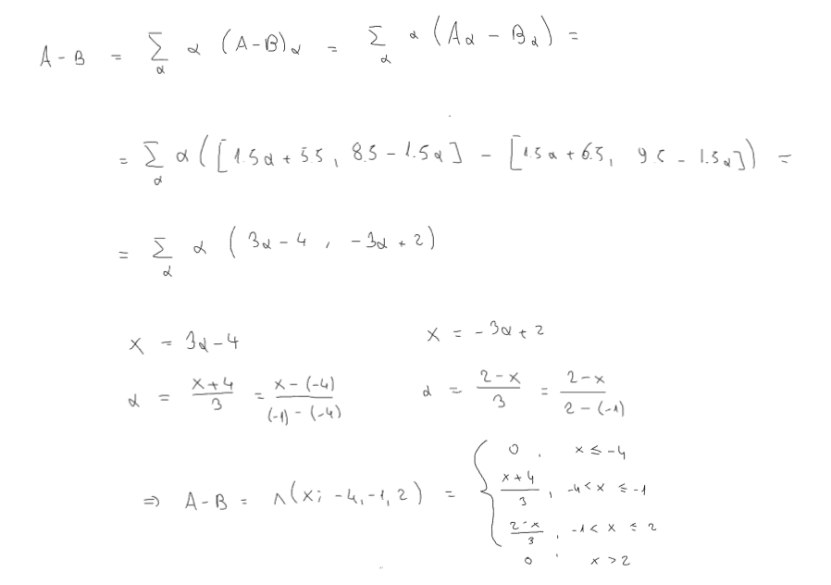 A - B = Σ_α α (A-B)_α = Σ_α α (A_α - B_α) =
= Σ_α α ([1.5α + 5.5, 8.5 - 1.5α] - [1.5α + 6.5, 9.5 - 1.5α]) =
= Σ_α α (3α - 4, -3α + 2)
x = 3α - 4 x = -3α + 2
α = (x+4)/3 = (x-(-4))/((-1)-(-4)) α = (2-x)/3 = (2-x)/(2-(-1))
⇒ A - B = Λ(x; -4, -1, 2) = {
0, x ≤ -4
(x+4)/3, -4 < x ≤ -1
(2-x)/3, -1 < x ≤ 2
0, x > 2